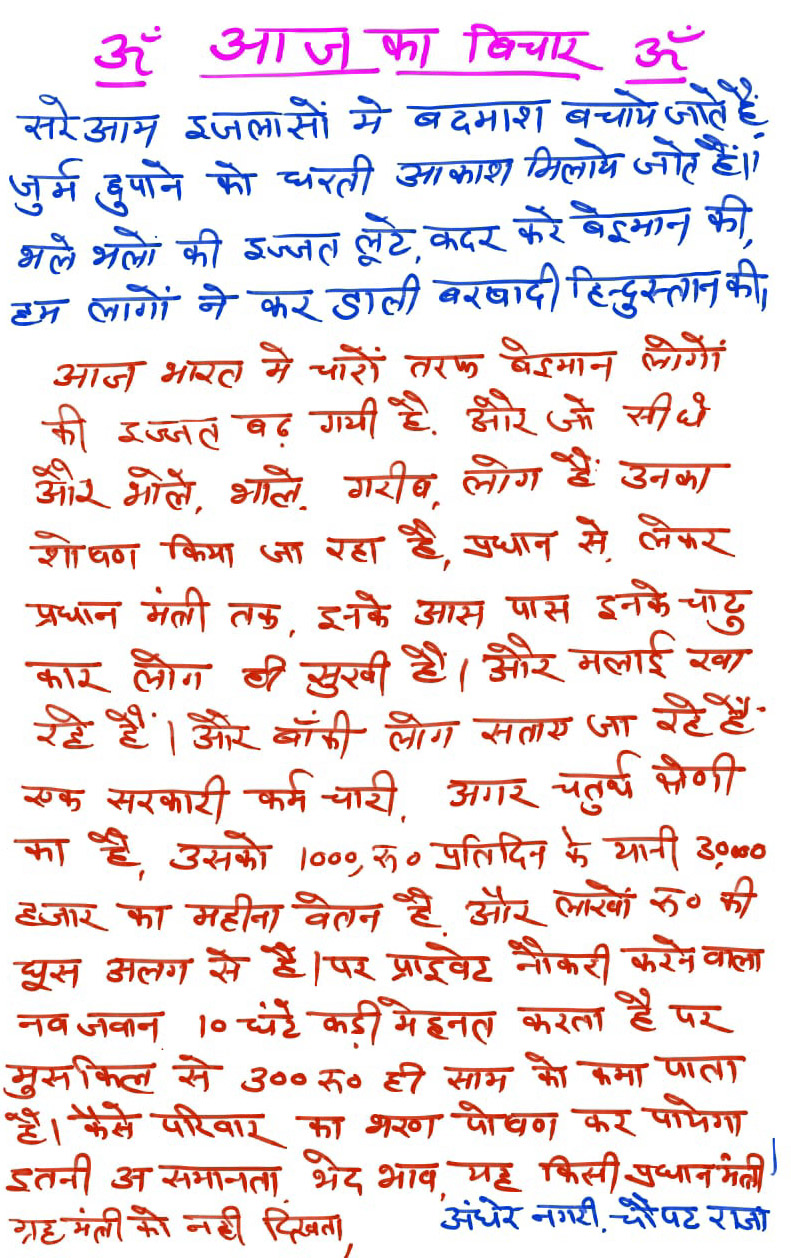 ॐ आज का बिचार ॐ
सरे आम इजलासों मे बदमाश बचाये जाते हैं,
जुर्म छुपाने को धरती आकाश मिलाये जाते हैं।।
भले भलों की इज्जत लूटे, कदर करे बेइमान की,
हम लोगों ने कर डाली बरबादी हिन्दुस्तान की।
आज भारत मे चारों तरफ बेइमान लोगों
की इज्जत बढ़ गयी है. और जो सीधे
और भोले, भाले. गरीब, लोग हैं उनका
शोषण किया जा रहा है, प्रधान से, लेकर
प्रधान मंत्री तक, इनके आस पास इनके चाटु
कार लोग ही सुखी हैं। और मलाई खा
रहे हैं। और बाँकी लोग सताए जा रहे हैं
एक सरकारी कर्म चारी, अगर चतुर्थ श्रेणी
का है, उसको 1000, रू० प्रतिदिन के यानी 30,000
हजार का महीना वेतन है, और लाखों रू० की
घूस अलग से है। पर प्राइवेट नौकरी करने वाला
नव जवान 10 घंटे कड़ी मेहनत करता है पर
मुसकिल से 300 रू० ही साम को कमा पाता
है। कैसे परिवार का भरण पोषण कर पायेगा
इतनी अ समानता, भेद भाव, यह किसी प्रधान मंत्री
ग्रह मंत्री को नही दिखता, अंधेर नगरी, चौपट राजा।